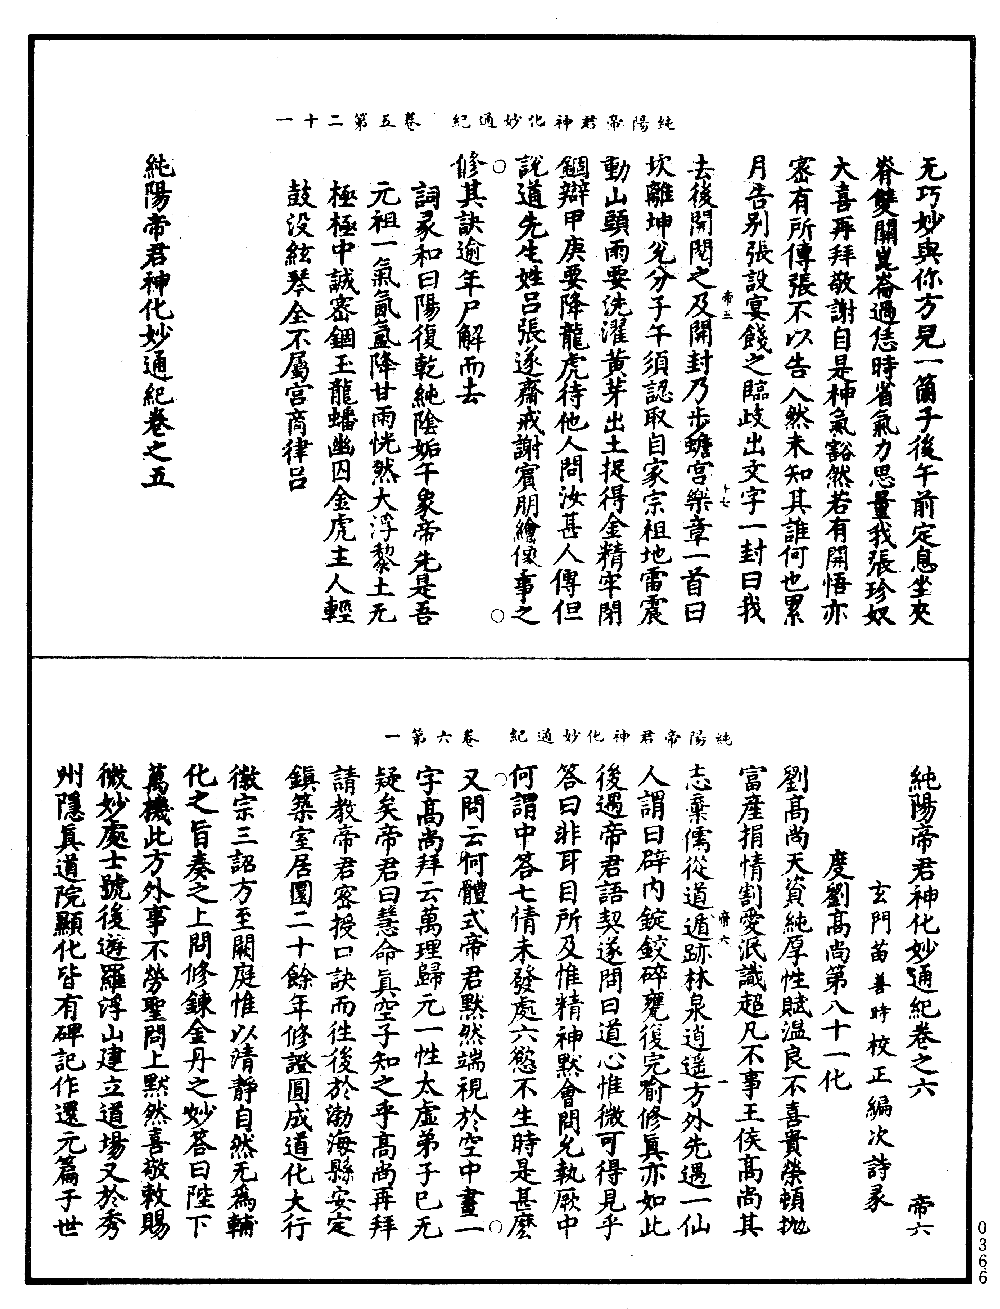 純陽帝君神化妙通紀　卷五第二十一
无巧妙與你方兒一箇子後午前定息坐夾
脊雙關崑崙過恁時省氣力思量我張珍奴
大喜再拜敬謝自是神氣豁然若有開悟亦
密有所傳張不以告人然未知其誰何也累
月告别張設宴餞之臨歧出文字一封曰我
去後開閱之及開封乃步蟾宮樂章一首曰
帝五　十七
坎離坤兌分子午須認取自家宗祖地雷震
動山頭雨要洗濯黃芽出土捉得金精牢閉
錮辯甲庚要降龍虎待他人問汝甚人傳但
說道先生姓呂張遂齋戒謝賓朋繪像事之
修其訣逾年尸解而去
詞彖和曰陽復乾純陰姤午象帝先是吾
元祖一氣氤氳降甘雨恍然大浮黎土无
極極中誠密錮玉龍蟠幽囚金虎主人輕
鼓没絃琴全不屬宮商律呂
純陽帝君神化妙通紀卷之五
純陽帝君神化妙通紀　卷六第一
純陽帝君神化妙通紀卷之六　帝六
玄門苗善時校正編次詩彖
度劉高尚第八十一化
劉高尚天資純厚性賦溫良不喜貴榮頓拋
富產捐情割愛泯識超凡不事王侯高尚其
志棄儒從道遁跡林泉逍遥方外先遇一仙
帝六　一
人謂曰碎内錠鉸碎甕復完喻修真亦如此
後遇帝君語契遂問曰道心惟微可得見乎
答曰非耳目所及惟精神默會問允執厥中
何謂中答七情未發處六慾不生時是甚麽
又問云何體式帝君默然端視於空中畫一
字高尚拜云萬理歸元一性太虚弟子已无
疑矣帝君曰慧命真空子知之乎高尚再拜
請教帝君密授口訣而往後於渤海縣安定
鎮築室居圜二十餘年修證圓成道化大行
徽宗三詔方至闕庭惟以清靜自然无爲輔
化之旨奏之上問修鍊金丹之妙答曰陛下
萬機此方外事不勞聖問上默然喜敬敕賜
微妙處士號後遊羅浮山建立道場又於秀
州隱真道院顯化皆有碑記作還元篇于世
0366